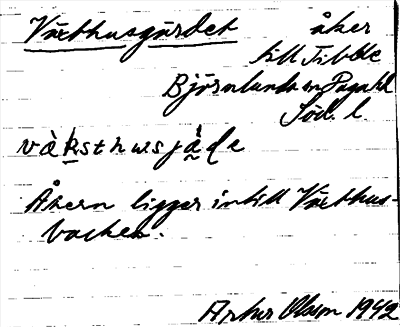 Växthusgärdet åker
till Tibble
Björnlunda sn Daga hd
Söd. l.
vàksthusjǟde
Åkern ligger intill Växthus-
backen.
Arthur Olsson 1942